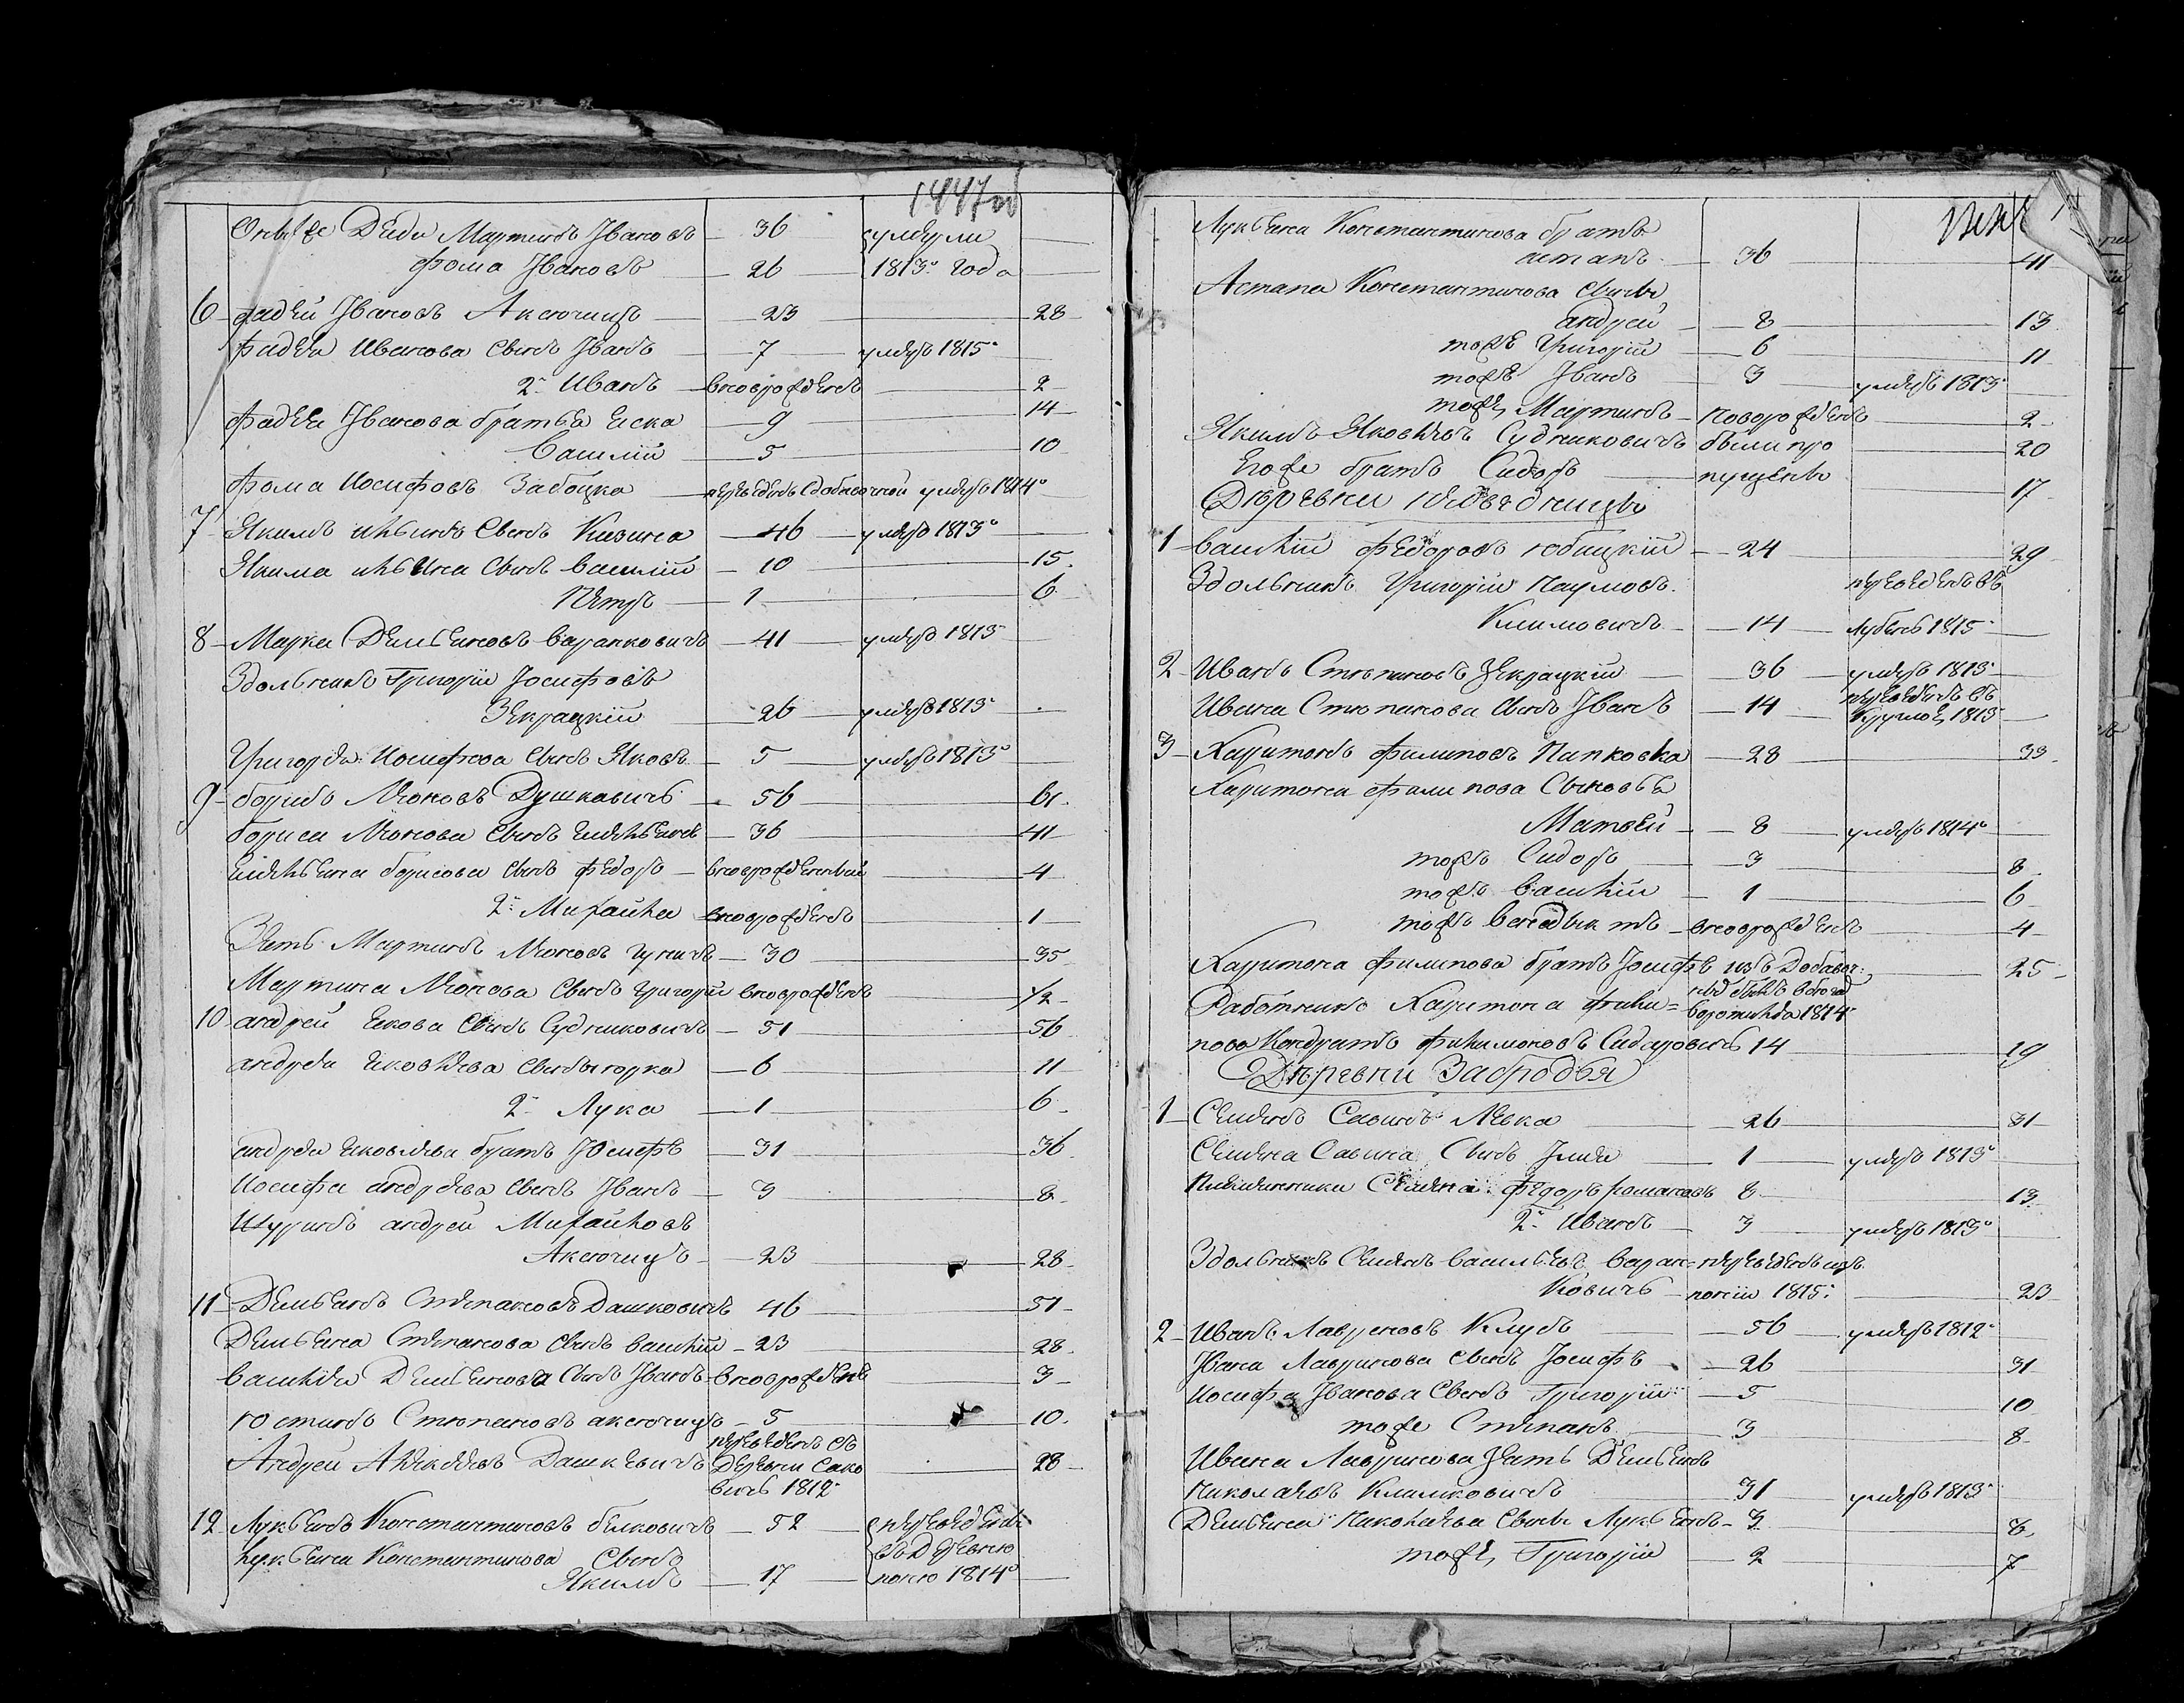 1447об
Оны же Дяди Мартинъ Ивановъ 36 умерли
фома Ивановъ 26 1813го года
6 фадей Ивановъ Аксючицъ 23 28
фадея Иванова Сынъ Иванъ 7 умеръ 1815го
2й Иванъ вновърожденъ 2
Фадея Иванова братья еска 9 14
Василій 5 10
Фома Иосифовъ Забоцка переведенъ сдобавочной умеръ 1814го
7 Якимъ ильинъ Сынъ Кизина 46 умеръ 1813го
Якима ильина Сынъ василій 10 15
Петръ 1 6
8 Марка Демьяновъ варанковичъ 41 умеръ 1813
Здольникъ Григорій Иосифовъ
Зекрацкій 26 умеръ 1813го
Григорья Иосифова Сынъ Яковъ 5 умеръ 1813го
9 борисъ Леоновъ Душковичъ 56 61
бориса Леонова Сынъ емельянъ 36 41
емельяна борисова Сынъ федоръ вновърожденный 4
2й Михайла вновърожденъ 1
Зять Мартинъ Леоновъ 30 35
Мартина Леонова Сынъ григорій вновърожденъ 1/2
10 андрей якова Сынъ Судниковичъ 51 56
андрея яковлева Сынъ 6 11
2й Лука 1 6
андрея яковлева братъ Іосифъ 31 36
Иосифа андреева Сынъ Іванъ 3 8
Шуринъ андрей Михайловъ
Аксючицъ 23 28
11 Демьянъ Степановъ Дашковичъ 46 51
Демьяна Степанова Сынъ василій 23 28
василья Демьянова Сынъ Іванъ вновърожденъ 3
юстинъ Степановъ аксючицъ 5 10
Андрей Алексеевъ Дашкевичъ переведенъ съ
деревни Сако 28
вичъ 1812го
12 Лукьянъ Константиновъ белковичъ 52 переведены
лукьяна Константинова Сынъ въ Деревню
Якимъ 17 1814го
Лукьяна Константинова братъ
астапъ 36 41
Астапа Константинова Сыны
андрей 8 13
тоже Григорій 6 11
тоже Іванъ 3 умеръ 1813
тоже Мартинъ новорожденъ 2
Якимъ Яковлевъ Судниковичъ были про 20
Егоже братъ Сидоръ пущены 17
Деревни
1 василій федоровъ юбицкій 24 29
Здольникъ Григорій Наумовъ переведенъ въ
Климовичъ 14 1815
2 Иванъ Степановъ Зекрацкій 36 умеръ 1813
Ивана Степанова Сынъ Іванъ 14 переведенъ въ
1813
3 Харитонъ филиповъ Папковка 28 33
Харитона филипова Сыновья
Матвей 8 умеръ 1814го
тожъ Сидоръ 3 8
тожъ василій 1 6
тожъ венедыктъ вновърожденъ 4
Харитона филипова братъ Іосифъ изъ Добавоч 25
Работникъ Харитона фили=
1814
пова Кондратъ филимоновъ Сидаровичъ 14 19
Деревни Забродья
1 Семенъ Савинъ Левка 26 31
Семена Савина Сынъ Илья 1 умеръ 1813го
племянники Семена федоръ романовъ 8 13
2й Иванъ 3 умеръ 1813го
Здольникъ Семенъ васильевъ варан= переведенъ изъ
ковичъ 1815го 23
2 Иванъ Лавреновъ Клубъ 56 умеръ 1812
Івана Лавринова Сынъ Іосифъ 26 31
Иосифа Іванова Сынъ Григорій 5 10
тоже Степанъ 3 8
Ивана Лавринова Зять Демьянъ
николаевъ Климковичъ 31 умеръ 1813
Демьяна николаева Сыны Лукьянъ 3 8
тоже Григорій 2 7